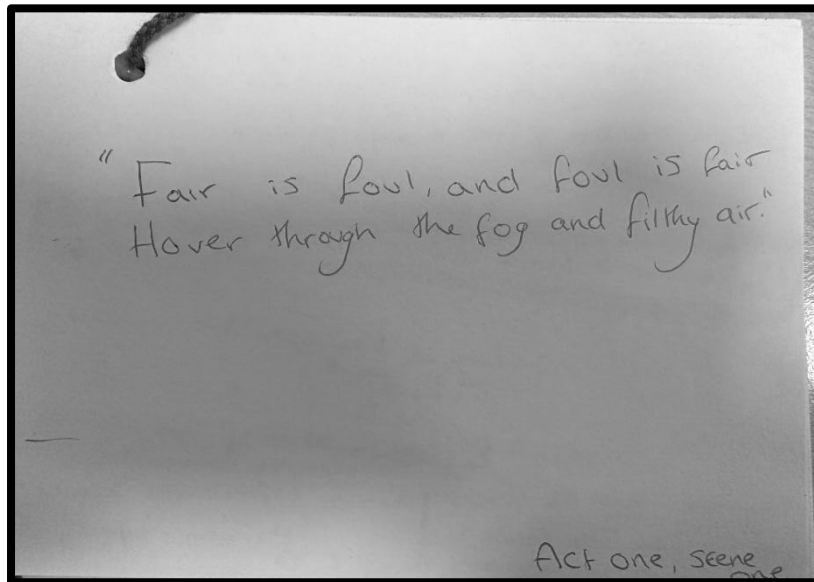 "Fair is foul, and foul is fair
Hover through the fog and filthy air."
Act one, scene
one